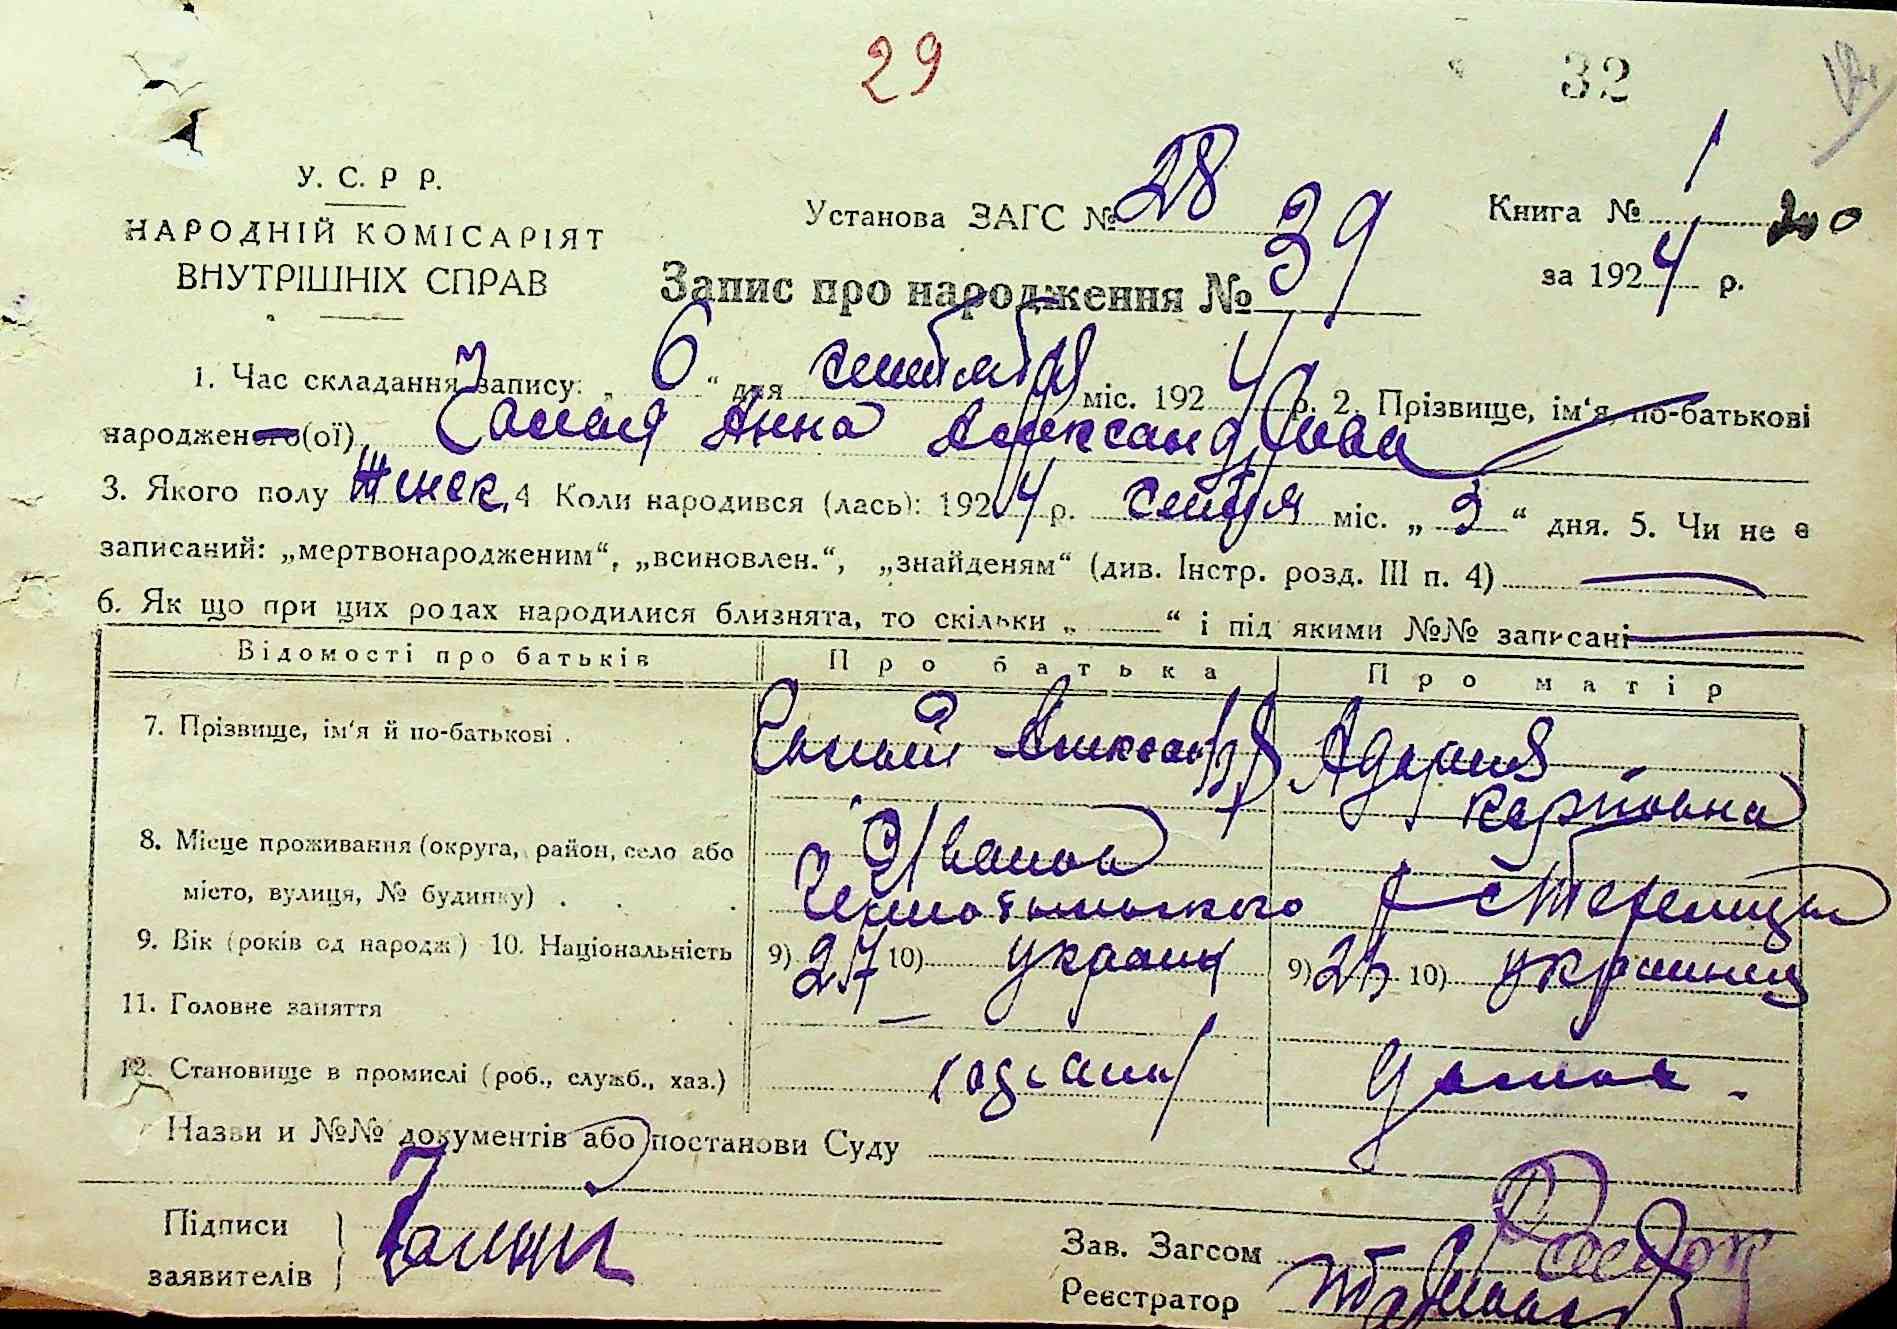 29
32
У. С. Р Р.
НАРОДНІЙ КОМІСАРІЯТ
ВНУТРІШНІХ СПРАВ
Установа ЗАГС № 28
Книга № 1
200
за 1924 р.
Запис про народження № 39
1. Час складання запису: „ 6 “ дня сентября міс. 1924 р. 2. Прізвище, ім‘я, по-батькові
народженого(ої) Анна Александрова
3. Якого полу Женск. 4 Коли народився (лась): 1924 р. сентбря міс. „ 3 “ дня. 5. Чи не є
записаний: „мертвонародженим“, „всиновлен.“, „знайденям“ (див. Інстр. розд. III п. 4)
6. Як що при цих родах народилися близнята, то скільки „ “ і під якими №№ записані
Відомості про батьків Про батька Про матір
7. Прізвище, ім‘я й по-батькові . Александр
Карповна
8. Місце проживання (округа, район, село або Иванов
місто, вулиця, № будинку) . .
9. Вік (років од народж) 10. Національність 9) 27 10) украин 9) 10) украинец
11. Головне заняття
12. Становище в промислі (роб., служб., хаз.)
Назви и №№ документів або постанови Суду
Підписи
заявителів
Зав. Загсом
Реєстратор